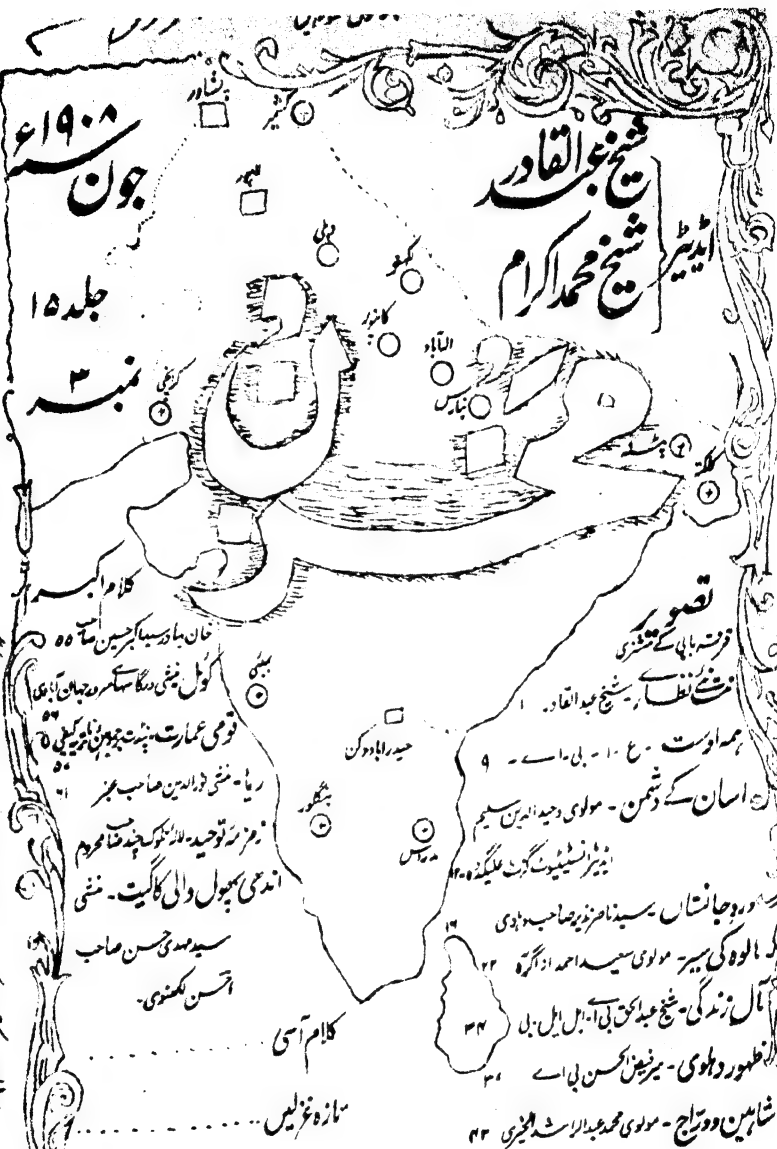 ایڈیٹر
شیخ عبدالقادر
شیخ محمد اکرام
جون ۱۹۰۸ء
جلد ۱۵
نمبر ۳
مخزن
پشاور
کشمیر
لاہور
دہلی
لکھنؤ
کانپور
الہ آباد
بنارس
پٹنہ
کلکتہ
کراچی
بمبئی
حیدراباد دکن
بنگلور
مدراس
تصویر
شیخ عبدالقادر ۱
ہمہ اوست - ع - ا - بی - اے - ۹
انسان کے دشمن - مولوی وحید الدین سلیم
ایڈیٹر انسٹیٹیوٹ گزٹ علیگڈہ
درد جانستاں - سید ناصر نذیر صاحب دہلوی ۱۶
مالوہ کی سیر - مولوی سعید احمد از اگرہ ۲۲
مآل زندگی - شیخ عبدالحق بی اے ایل ایل بی ۳۴
ظہور دہلوی - میر فیض الحسن بی اے
شاہین و درّاج - مولوی محمد عبدالراشد الخیری ۴۳
کلام اکبر
خان بہادر سید اکبر حسین صاحب ۵۵
کوئل - منشی درگا سہائے سرور جہان آبادی ۵۶
قومی عمارت - پنڈت
ریا - منشی نورالدین صاحب عنبر ۶۱
زمزمہ توحید - لالہ تلوک چند صاحب محروم
اندھی پھول والی کا گیت - منشی
سید مہدی حسن صاحب
احسن لکھنوی -
کلام آسی
تازہ غزلیں